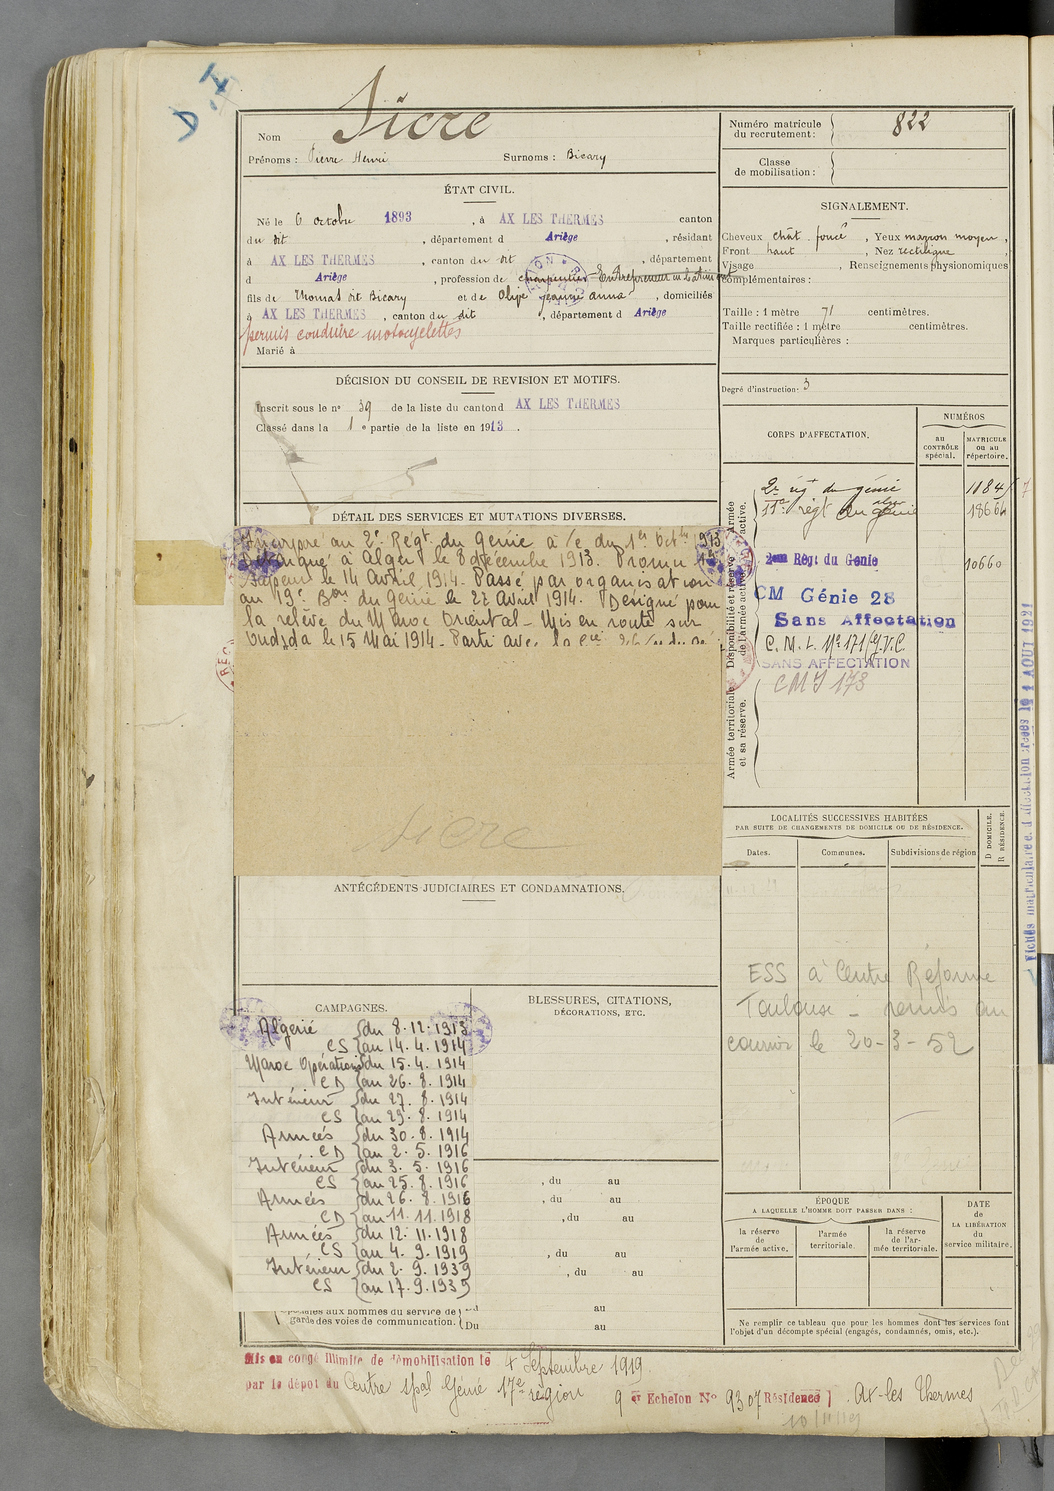 D.I
Nom Sicre
Prénoms : Pierre Henri Surnoms : Bicary
Numéro matricule du recrutement : 822
Classe de mobilisation :
ÉTAT CIVIL.
Né le 6 octobre 1893, à AX LES THERMES canton
du dit, département d Ariège, résidant
à AX LES THERMES, canton du dit, département
d Ariège, profession de charpentier - Entrepreneur
fils de Thomas dit Bicary et de Olije Jeanne Anna, domiciliés
à AX LES THERMES, canton du dit, département d Ariège
permis conduire motocyclettes
Marié à
SIGNALEMENT.
Cheveux chât. foncé, Yeux marron moyen,
Front haut, Nez rectiligne,
Visage, Renseignements physionomiques
complémentaires :
Taille : 1 mètre 71 centimètres.
Taille rectifiée : 1 mètre centimètres.
Marques particulières :
Degré d'instruction : 3
DÉCISION DU CONSEIL DE REVISION ET MOTIFS.
Inscrit sous le n° 39 de la liste du canton d AX LES THERMES
Classé dans la 1e partie de la liste en 1913.
5
CORPS D'AFFECTATION.
NUMÉROS
au CONTRÔLE spécial.
MATRICULE ou au répertoire.
Armée active.
2e rgt du génie 1184
11e régt du génie 18664
Disponibilité et réserve de l'armée active.
2eme Régt du Génie 10660
CM Génie 28
Sans Affectation
C. M. I. N° 171/G.V.C.
SANS AFFECTATION
CMI 173
Armée territoriale et sa réserve.
DÉTAIL DES SERVICES ET MUTATIONS DIVERSES.
Incorporé au 2e Régt. du Génie à /c du 1er Octbre 1913
à Alger le 8 décembre 1913. Promu
Sapeur le 14 Avril 1914. Passé par organisation
au 19e Bon du Génie le 27 Avril 1914. Désigné pour
la relève du Maroc Oriental - Mis en route sur
Oudjda le 15 Mai 1914 - Parti avec la Cie
Sicre
ANTÉCÉDENTS JUDICIAIRES ET CONDAMNATIONS.
LOCALITÉS SUCCESSIVES HABITÉES
PAR SUITE DE CHANGEMENTS DE DOMICILE OU DE RÉSIDENCE.
Dates. Communes. Subdivisions de région
D DOMICILE.
R RÉSIDENCE.
ESS à Centre Réforme
Toulouse - remis au
courrier le 20-3-52
CAMPAGNES.
Algérie {du 8.12.1913
CS {au 14.4.1914
Maroc Opérations {du 15.4.1914
CD {au 26.8.1914
Intérieur {du 27.8.1914
CS {au 29.8.1914
Armées {du 30.8.1914
CD {au 2.5.1916
Intérieur {du 3.5.1916
CS {au 25.8.1916
Armées {du 26.8.1916
CD {au 11.11.1918
Armées {du 12.11.1918
CS {au 4.9.1919
Intérieur {du 2.9.1939
CS {au 17.9.1939
aux hommes du service de
garde des voies de communication. {Du
BLESSURES, CITATIONS,
DÉCORATIONS, ETC.
, du au
, du au
, du au
, du au
, du au
au
au
ÉPOQUE
A LAQUELLE L'HOMME DOIT PASSER DANS :
la réserve de l'armée active.
l'armée territoriale.
la réserve de l'armée territoriale.
DATE de LA LIBÉRATION du service militaire.
Ne remplir ce tableau que pour les hommes dont les services font
l'objet d'un décompte spécial (engagés, condamnés, omis, etc.).
Mis en congé illimité de démobilisation le 4 Septembre 1919
par le dépôt du Centre spal Génie 17e région 9 er Echelon N° 9307 Résidence Ax-les Thermes